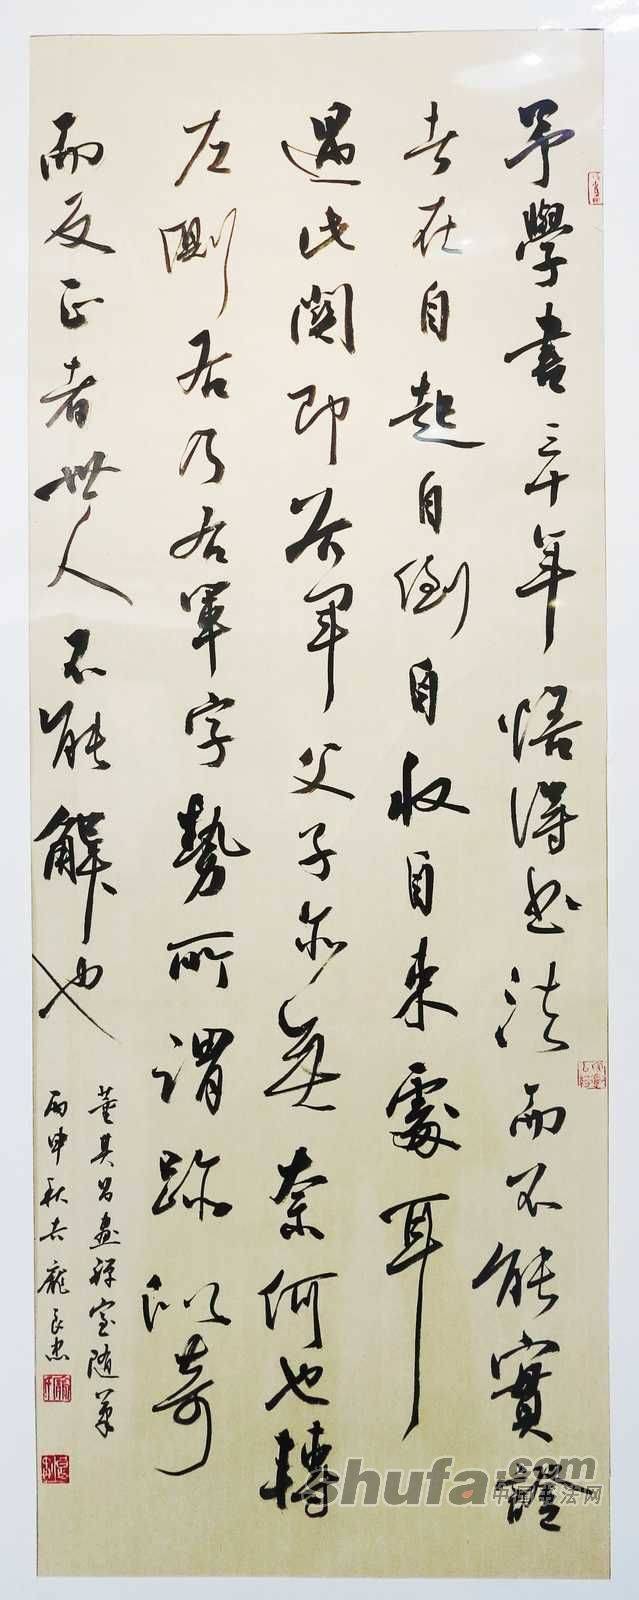 予學書三十年悟得書法而不能實證
者在自起自倒自收自束處耳
過此關即右軍父子亦無奈何也轉
左側右乃右軍字勢所謂跡似奇
而反正者世人不能解也
董其昌畫禪室随筆
丙申秋吉龐良忠
shufa.com
中国书法网